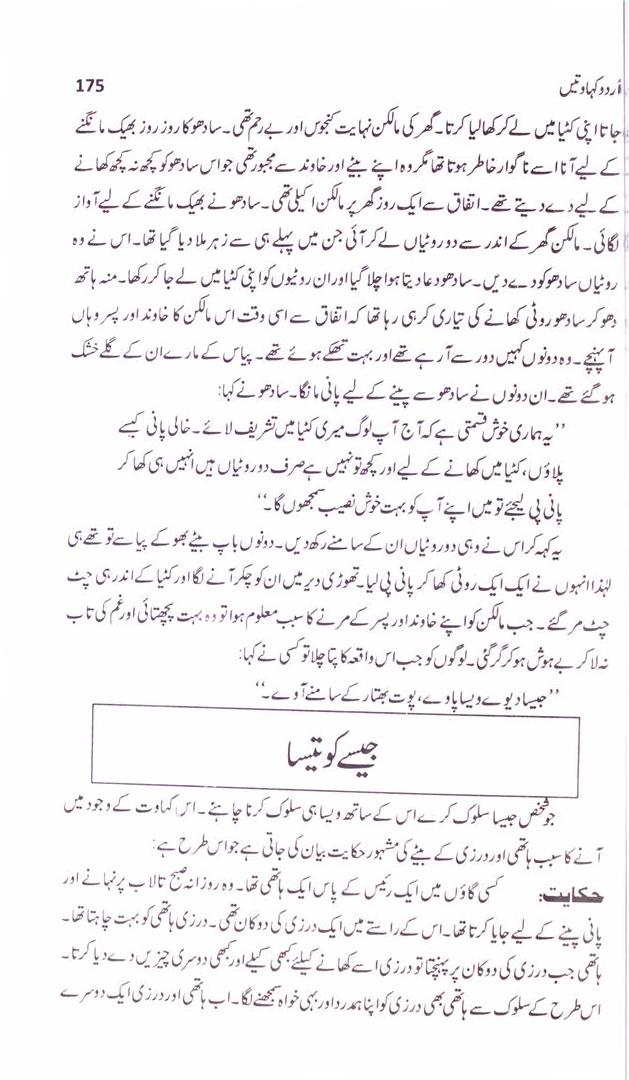 اُردو کہاوتیں
175
جاتا اپنی کٹیا میں لے کر کھا لیا کرتا۔ گھر کی مالکن نہایت کنجوس اور بے رحم تھی۔ سادھو کا روز روز بھیک مانگنے
کے لیے آنا اسے ناگوارِ خاطر ہوتا تھا مگر وہ اپنے بیٹے اور خاوند سے مجبور تھی جو اس سادھو کو کچھ نہ کچھ کھانے
کے لیے دے دیتے تھے۔ اتفاق سے ایک روز گھر پر مالکن اکیلی تھی۔ سادھو نے بھیک مانگنے کے لیے آواز
لگائی۔ مالکن گھر کے اندر سے دو روٹیاں لے کر آئی جن میں پہلے ہی سے زہر ملا دیا گیا تھا۔ اس نے وہ
روٹیاں سادھو کو دے دیں۔ سادھو دعا دیتا ہوا چلا گیا اور ان روٹیوں کو اپنی کٹیا میں لے جا کر رکھا۔ منہ ہاتھ
دھو کر سادھو روٹی کھانے کی تیاری کر ہی رہا تھا کہ اتفاق سے اسی وقت اس مالکن کا خاوند اور پسر وہاں
آ پہنچے۔ وہ دونوں کہیں دور سے آ رہے تھے اور بہت تھکے ہوئے تھے۔ پیاس کے مارے ان کے گلے خشک
ہو گئے تھے۔ ان دونوں نے سادھو سے پینے کے لیے پانی مانگا۔ سادھو نے کہا:
’’یہ ہماری خوش قسمتی ہے کہ آج آپ لوگ میری کٹیا میں تشریف لائے۔ خالی پانی کیسے
پلاؤں، کٹیا میں کھانے کے لیے اور کچھ تو نہیں ہے صرف دو روٹیاں ہیں انہیں ہی کھا کر
پانی پی لیجئے تو میں اپنے آپ کو بہت خوش نصیب سمجھوں گا۔‘‘
یہ کہہ کر اس نے وہی دو روٹیاں ان کے سامنے رکھ دیں۔ دونوں باپ بیٹے بھوکے پیاسے تو تھے ہی
لہٰذا انہوں نے ایک ایک روٹی کھا کر پانی پی لیا۔ تھوڑی دیر میں ان کو چکر آنے لگا اور کٹیا کے اندر ہی چٹ
چٹ مر گئے۔ جب مالکن کو اپنے خاوند اور پسر کے مرنے کا سبب معلوم ہوا تو وہ بہت پچھتائی اور غم کی تاب
نہ لا کر بے ہوش ہو کر گر گئی۔ لوگوں کو جب اس واقعہ کا پتا چلا تو کسی نے کہا:
’’جیسا دیوے ویسا پاوے، پوت بھتار کے سامنے آوے۔‘‘
جیسے کو تیسا
جو شخص جیسا سلوک کرے اس کے ساتھ ویسا ہی سلوک کرنا چاہئے۔ اس کہاوت کے وجود میں
آنے کا سبب ہاتھی اور درزی کے بیٹے کی مشہور حکایت بیان کی جاتی ہے جو اس طرح ہے:
حکایت: کسی گاؤں میں ایک رئیس کے پاس ایک ہاتھی تھا۔ وہ روزانہ صبح تالاب پر نہانے اور
پانی پینے کے لیے جایا کرتا تھا۔ اس کے راستے میں ایک درزی کی دوکان تھی۔ درزی ہاتھی کو بہت چاہتا تھا۔
ہاتھی جب درزی کی دوکان پر پہنچتا تو درزی اسے کھانے کیلئے کبھی کیلے اور کبھی دوسری چیزیں دے دیا کرتا۔
اس طرح کے سلوک سے ہاتھی بھی درزی کو اپنا ہمدرد اور بہی خواہ سمجھنے لگا۔ اب ہاتھی اور درزی ایک دوسرے